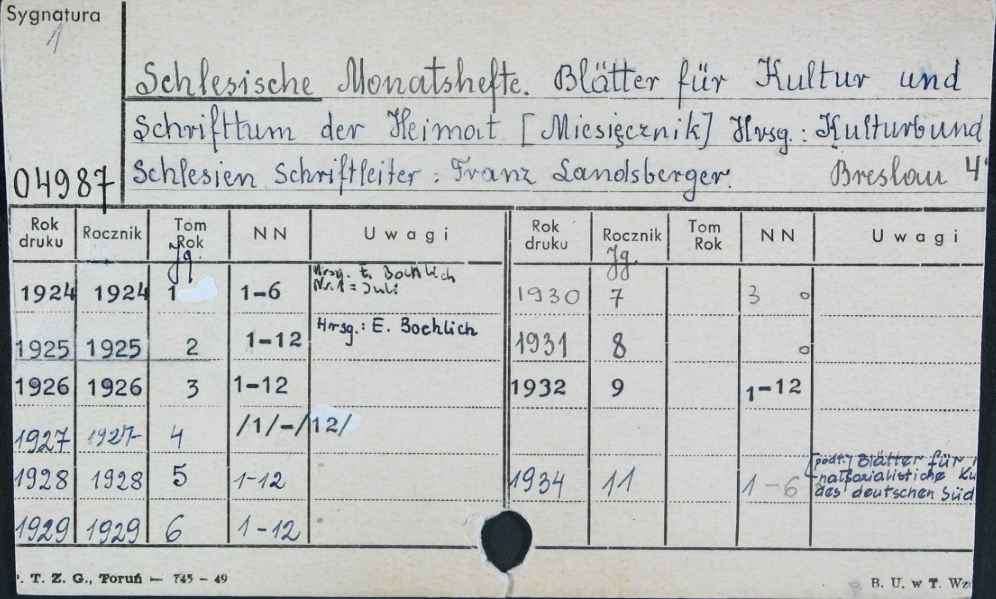 Sygnatura
1
Schlesische Monatshefte. Blätter für Kultur und
Schrifttum der Heimat [Miesięcznik] Hrsg.: Kulturbund
04987 Schlesien Schriftleiter: Franz Landsberger. Breslau 4°
Rok druku Rocznik Tom Rok Jg. NN Uwagi Rok druku Rocznik Jg. Tom Rok NN Uwagi
1924 1924 1 1-6 Hrsg. E. Bochlich Nr. 1 = Juli 1930 7 3 o
1925 1925 2 1-12 Hrsg.: E. Bochlich 1931 8 o
1926 1926 3 1-12 1932 9 1-12
1927 1927 4 /1/-/12/
1928 1928 5 1-12 1934 11 1-6 podt.) Blätter für natsozialistiche Ku des deutschen Süd
1929 1929 6 1-12
. T. Z. G., Toruń — 745 - 49 B. U. w T. Wz